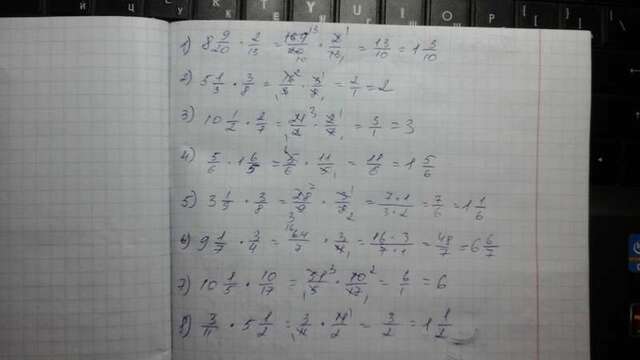 1) 8 9/20 · 2/13 = 169/20 · 2/13 = 13/10 = 1 3/10
2) 5 1/3 · 3/8 = 16/3 · 3/8 = 2/1 = 2
3) 10 1/2 · 2/7 = 21/2 · 2/7 = 3/1 = 3
4) 5/6 · 1 6/5 = 5/6 · 11/5 = 11/6 = 1 5/6
5) 3 1/9 · 3/8 = 28/9 · 3/8 = 7·1/3·2 = 7/6 = 1 1/6
6) 9 1/7 · 3/4 = 64/7 · 3/4 = 16·3/7·1 = 48/7 = 6 6/7
7) 10 1/5 · 10/17 = 51/5 · 10/17 = 6/1 = 6
8) 3/11 · 5 1/2 = 3/11 · 11/2 = 3/2 = 1 1/2